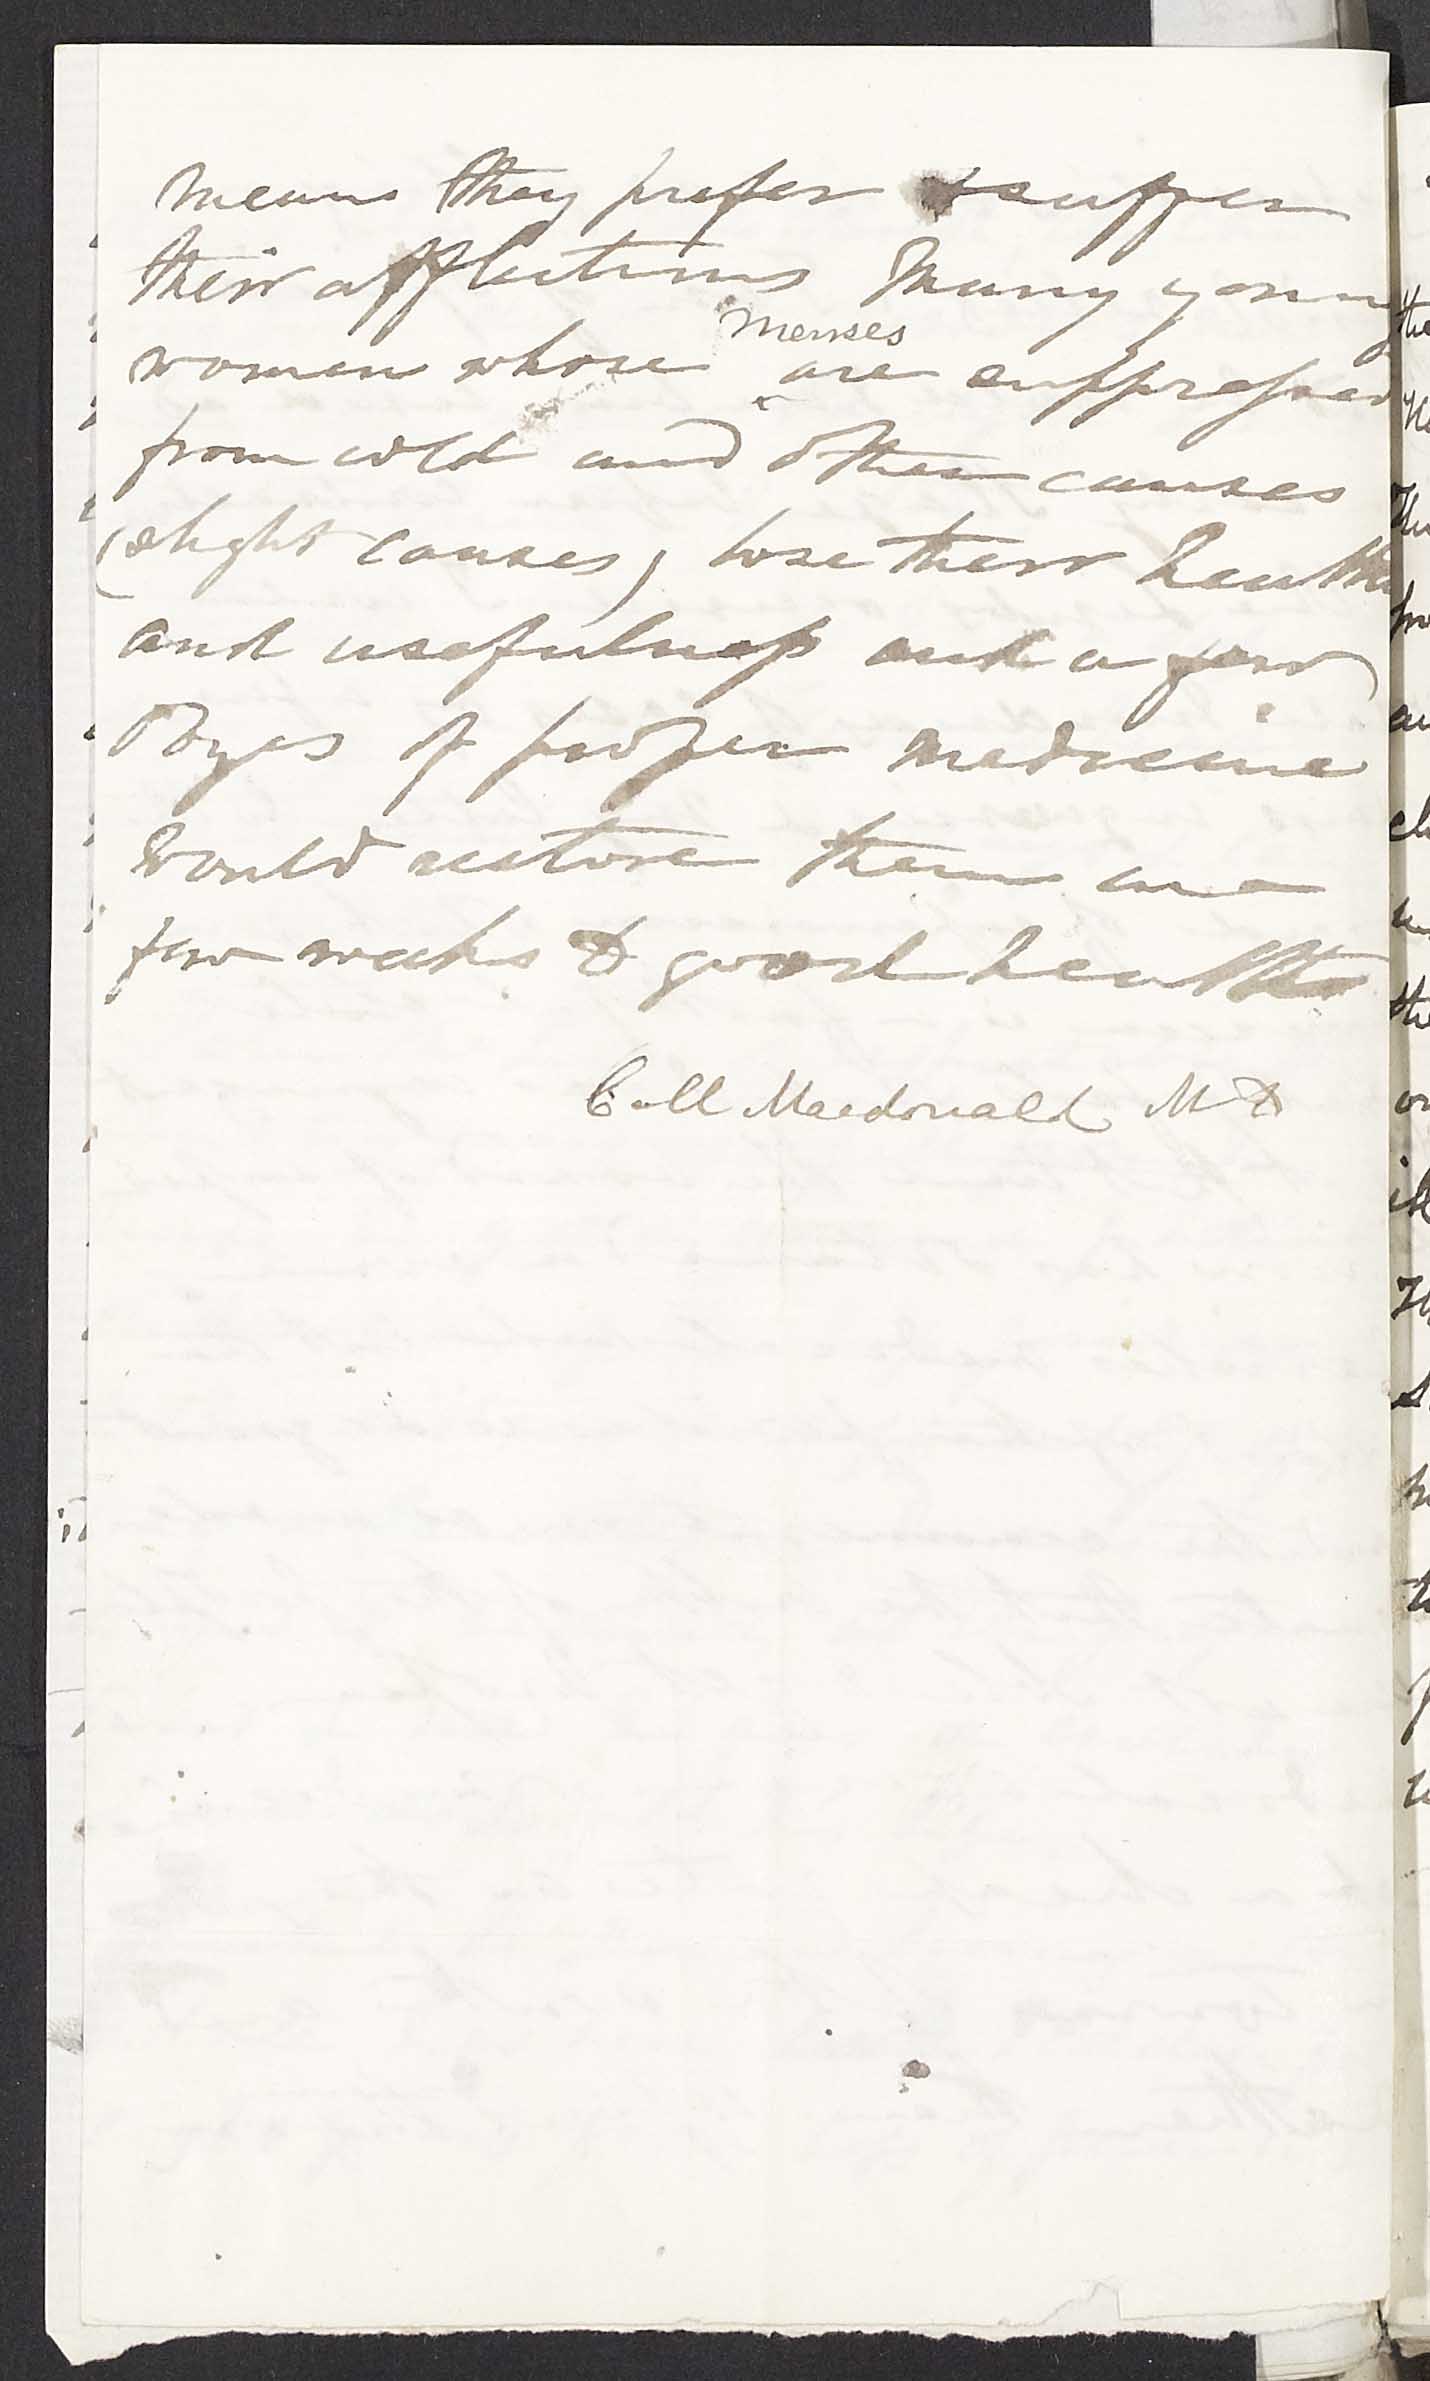 means they prefer to suffer
their afflictions Many young
women whose menses are suppressed
from cold and other causes
(slight causes) lose their health
and usefulness and a few
Doses of proper medicine
would restore them in a
few weeks to good health
Coll Macdonald MD